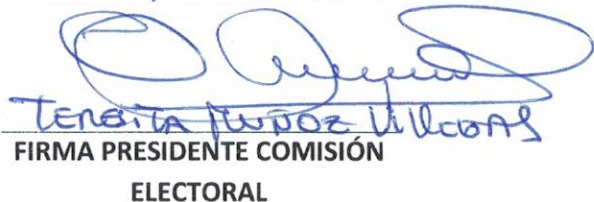 TERESITA MUÑOZ VILLEGAS
FIRMA PRESIDENTE COMISIÓN
ELECTORAL